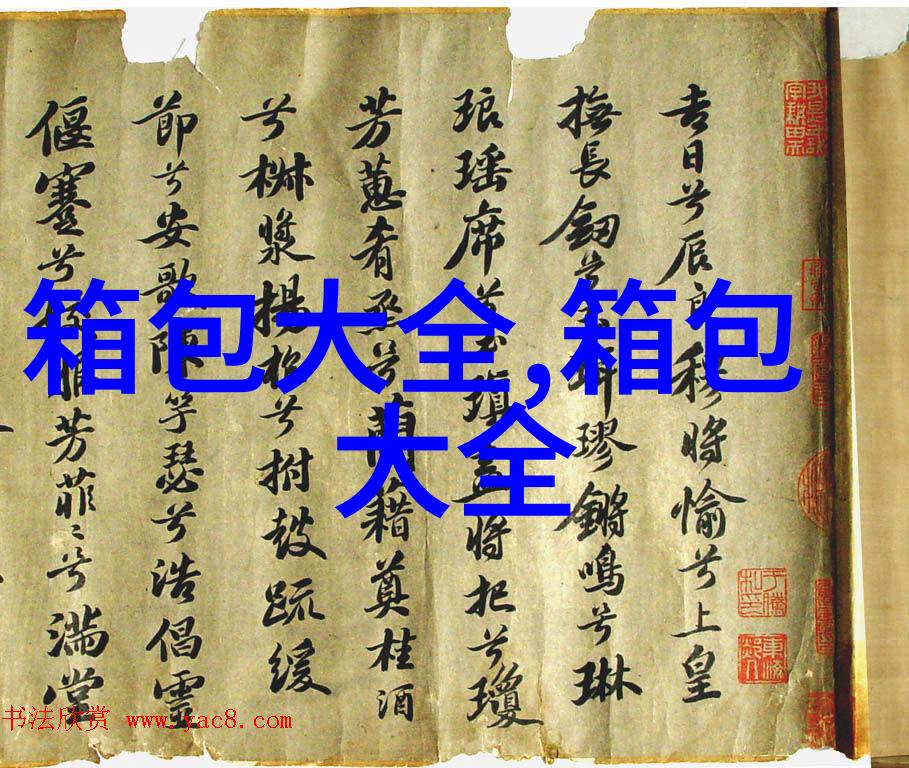 吉日兮辰良穆將愉兮上皇
撫長劒兮玉珥璆鏘鳴兮琳
琅瑶席兮玉瑱盍將把兮瓊
芳蕙肴烝兮蘭藉奠桂酒
兮椒漿揚枹兮拊鼓疏緩
節兮安歌陳竽瑟兮浩倡靈
偃蹇兮姣服芳菲〻兮滿堂
箱包大全,箱包
大全
书法欣赏 www.yac8.com